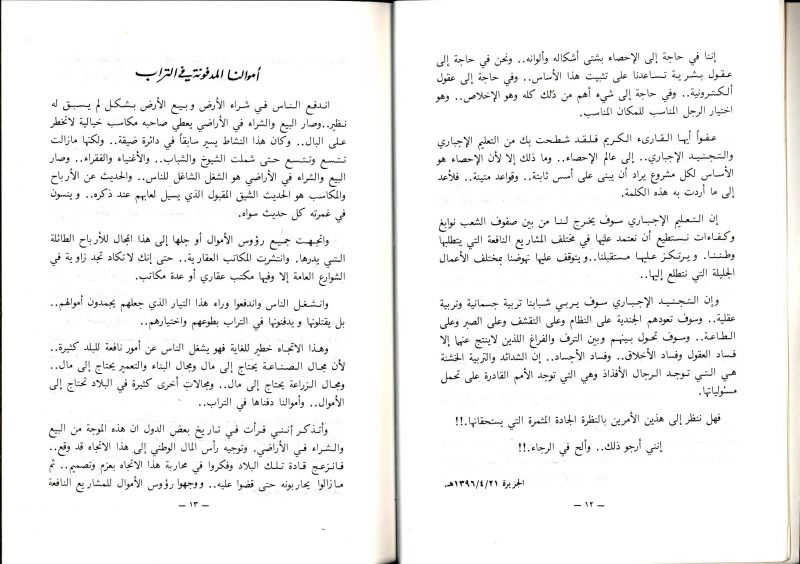 إننا في حاجة إلى الإحصاء بشتى أشكاله وألوانه.. ونحن في حاجة إلى
عقول بشرية تساعدنا على تثبيت هذا الأساس.. وفي حاجة إلى عقول
ألكترونية.. وفي حاجة إلى شيء أهم من ذلك كله وهو الإخلاص.. وهو
اختيار الرجل المناسب للمكان المناسب.
عفواً أيها القارىء الكريم فلقد شطحت بك من التعليم الإجباري
والتجنيد الإجباري.. إلى عالم الإحصاء.. وما ذلك إلا لأن الإحصاء هو
الأساس لكل مشروع يراد أن يبنى على أسس ثابتة.. وقواعد متينة.. فلأعد
إلى ما أردت به هذه الكلمة.
إن التعليم الإجباري سوف يخرج لنا من بين صفوف الشعب نوابغ
وكفاءات نستطيع أن نعتمد عليها في مختلف المشاريع النافعة التي يتطلبها
وطننا. ويرتكز عليها مستقبلنا.. ويتوقف عليها نهوضنا بمختلف الأعمال
الجليلة التي نتطلع إليها..
وإن التجنيد الإجباري سوف يربي شبابنا تربية جسمانية وتربية
عقلية.. وسوف تعودهم الجندية على النظام وعلى التقشف وعلى الصبر وعلى
الطاعة.. وسوف تحول بينهم وبين الترف والفراغ اللذين لاينتج عنهما إلا
فساد العقول وفساد الأخلاق.. وفساد الأجساد.. إن الشدائد والتربية الخشنة
هي التي توجد الرجال الأفذاذ وهي التي توجد الأمم القادرة على تحمل
مسئولياتها.
فهل ننظر إلى هذين الأمرين بالنظرة الجادة المثمرة التي يستحقانها.!!
إنني أرجو ذلك.. وألح في الرجاء.!!
الجزيرة ١٣٩٦/٤/٢١هـ.
— ١٢ —
أموالنا المدفونة في التراب
اندفع الناس في شراء الأرض وبيع الأرض بشكل لم يسبق له
نظير.. وصار البيع والشراء في الأراضي يعطي صاحبه مكاسب خيالية لاتخطر
على البال.. وكان هذا النشاط يسير سابقاً في دائرة ضيقة.. ولكنها مازالت
تتسع وتتسع حتى شملت الشيوخ والشباب.. والأغنياء والفقراء.. وصار
البيع والشراء في الأراضي هو الشغل الشاغل للناس.. والحديث عن الأرباح
والمكاسب هو الحديث الشيق المقبول الذي يسيل لعابهم عند ذكره.. وينسون
في غمرته كل حديث سواه.
واتجهت جميع رؤوس الأموال أو جلها إلى هذا المجال للأرباح الطائلة
التي يدرها. وانتشرت المكاتب العقارية.. حتى إنك لاتكاد تجد زاوية في
الشوارع العامة إلا وفيها مكتب عقاري أو عدة مكاتب.
وانشغل الناس واندفعوا وراء هذا التيار الذي جعلهم يجمدون أموالهم..
بل يقتلونها ويدفنونها في التراب بطوعهم واختيارهم..
وهذا الاتجاه خطير للغاية فهو يشغل الناس عن أمور نافعة للبلد كثيرة..
لأن مجال الصناعة يحتاج إلى مال ومجال البناء والتعمير يحتاج إلى مال..
ومجال الزراعة يحتاج إلى مال.. ومجالات أخرى كثيرة في البلاد تحتاج إلى
الأموال.. وأموالنا دفناها في التراب..
وأتذكر أنني قرأت في تاريخ بعض الدول ان هذه الموجة من البيع
والشراء في الأراضي. وتوجيه رأس المال الوطني إلى هذا الاتجاه قد وقع..
فانزعج قادة تلك البلاد وفكروا في محاربة هذا الاتجاه بعزم وتصميم.. ثم
مازالوا يحاربونه حتى قضوا عليه.. ووجهوا رؤوس الأموال للمشاريع النافعة
— ١٣ —